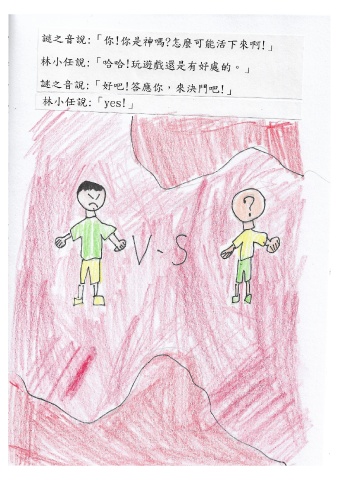 謎之音說:「你!你是神嗎?怎麼可能活下來啊!」
林小任說:「哈哈!玩遊戲還是有好處的。」
謎之音說:「好吧!答應你,來決鬥吧!」
林小任說:「yes!」
?
V-S